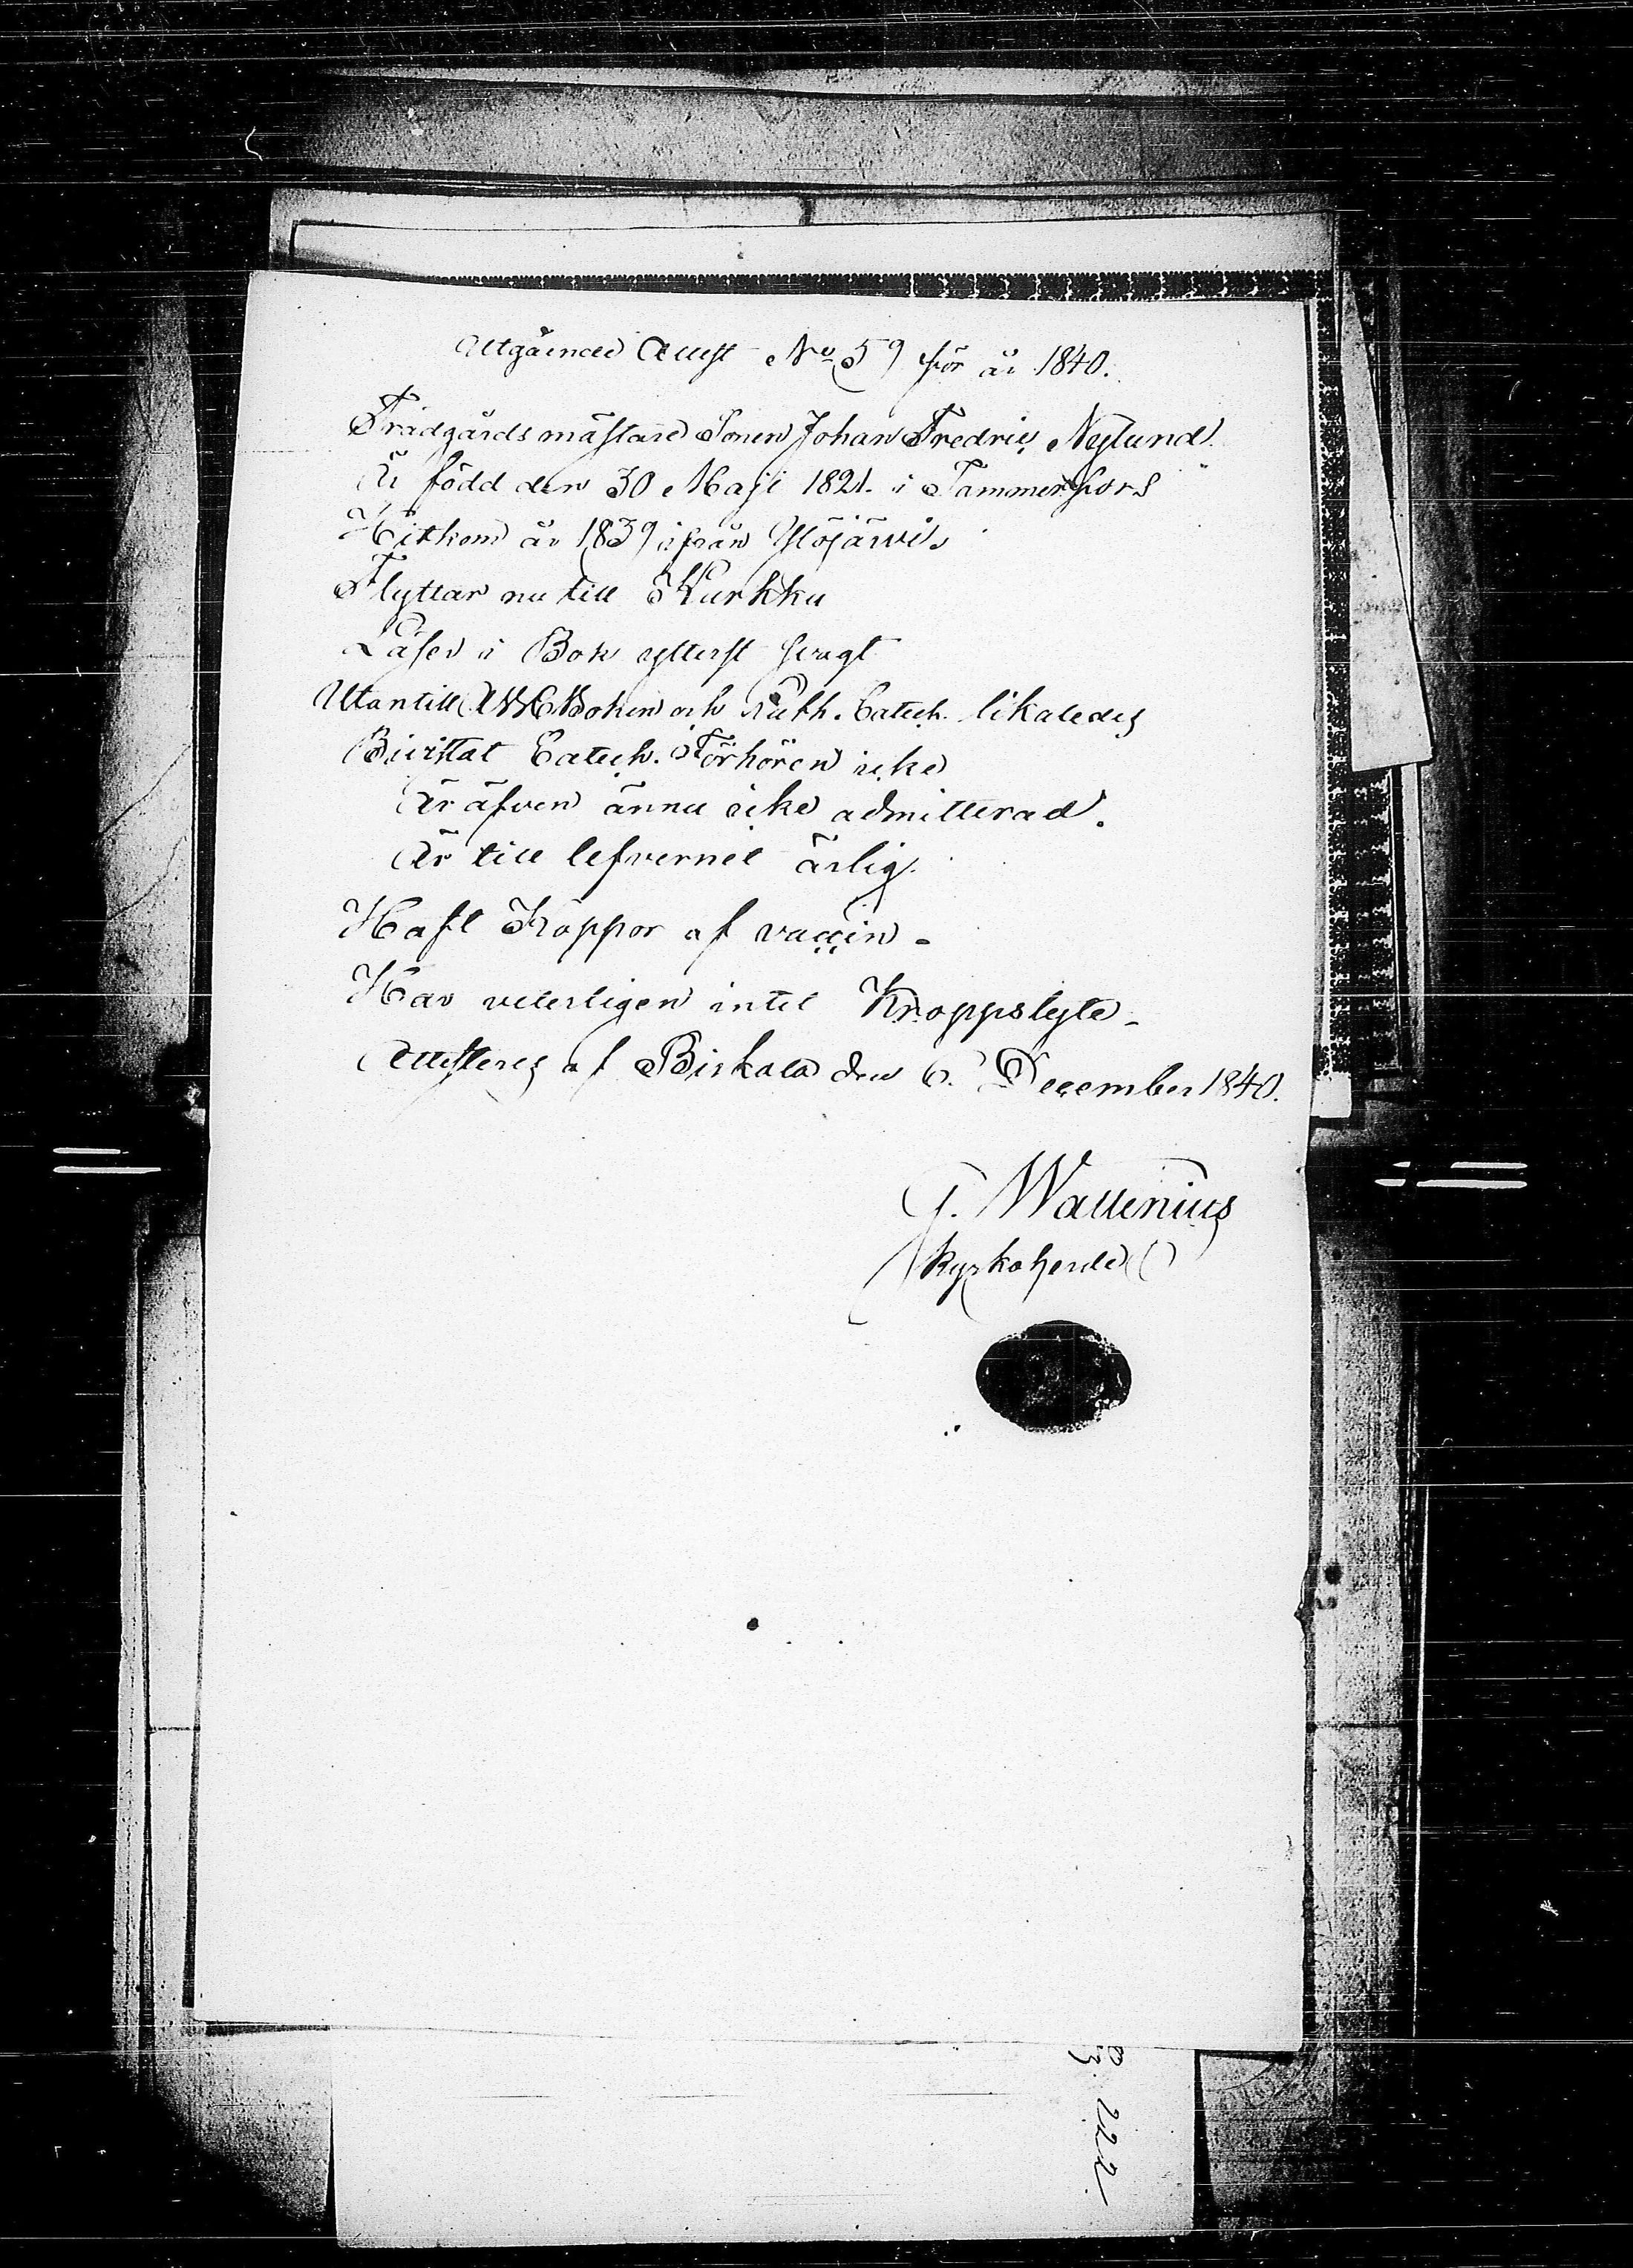 Utgående Attest No 59 för år 1840.
Trädgårdsmästare Sonen Johan Fredric Nylund
Är född den 30 Maji 1821. i Tammerfors
Hitkom år 1839 ifrån Ylöjärvi
Flyttar nu till Karkku
Läser i Bok ytterst svagt
Utantill ABC Boken och Luth. Catech. likaledes
Bivistat Catech. Förhören icke
Är äfven ännu icke admitterad.
Är till lefvernet ärlig.
Haft Koppor af vaccin -
Har veterligen intet Kroppslyte -
Attesteras af Birkala den 6. December 1840.
G. Wallenius
Kyrkoherde
222